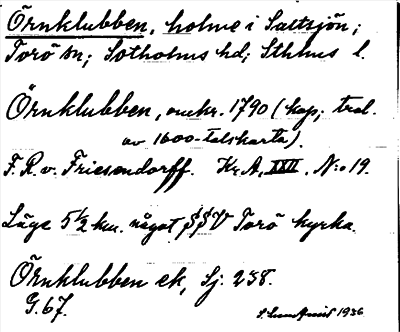 Örnklubben, holme i Saltsjön;
Torö sn; Sotholms hd; Sthlms l.
Örnklubben, omkr. 1790 (kop; trol.
av 1600-talskarta).
F. R. v. Friesendorff. Kr. A, XXII. N:o 19.
Läge 5 1/2 km. något SSV Torö kyrka.
Örnklubben ek, Sj: 238.
G. 67.
S. Lundqvist 1936